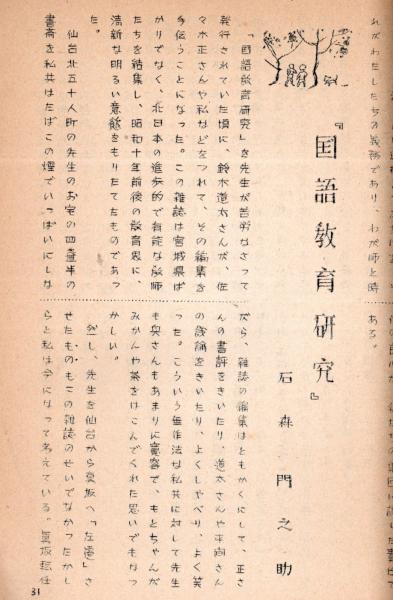 れがわたしたちの義務であり、わが師と時
ある。
『国語教育研究』
石森門之助
「国語教育研究」を先生が苦労なさって
発行されていた頃に、鈴木道太さんが、佐
々木正さんや私などをつれて、その編集を
手伝うことになった。この雑誌は宮城県ば
かりでなく、北日本の進歩的で有能な教師
たちを結集し、昭和十年前後の教育界に、
清新な明るい意慾をもりたてたものであっ
た。
仙台北五十人町の先生のお宅の四畳半の
書斎を私共はたばこの煙でいっぱいにしな
がら、雑誌の編集はともかくにして、正さ
んの書評をきいたり、道太さんや さん
の議論をきいたり、よくしゃべり、よく笑
った。こういう無作法な私共に対して先生
も奥さんもあまりに寛容で、もとちゃんが
みかんや茶をはこんでくれた思いでもなつ
かしい。
然し、先生を仙台から夏坂へ「左遷」さ
せたものもこの雑誌のせいでなかったかし
らと私は今になって考えている。夏坂赴任
31